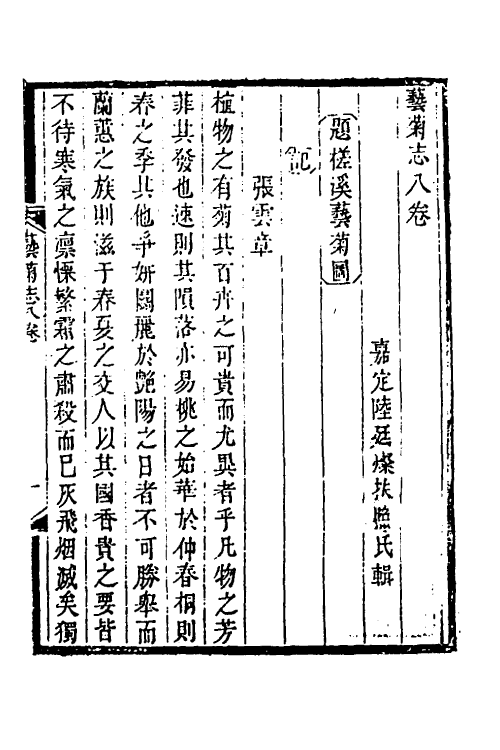 藝菊志八卷
嘉定陸廷燦扶照氏輯
題槎溪藝菊圖
記
張雲章
植物之有菊其百卉之可貴而尤異者乎凡物之芳
菲其發也速則其隕落亦易桃之始華於仲春桐則
春之季其他爭妍鬭麗於艷陽之日者不可勝舉而
蘭蕙之族則滋于春夏之交人以其國香貴之要皆
不待寒氣之凛慄繁霜之肅殺而已灰飛烟滅矣獨
藝菊志八卷
一